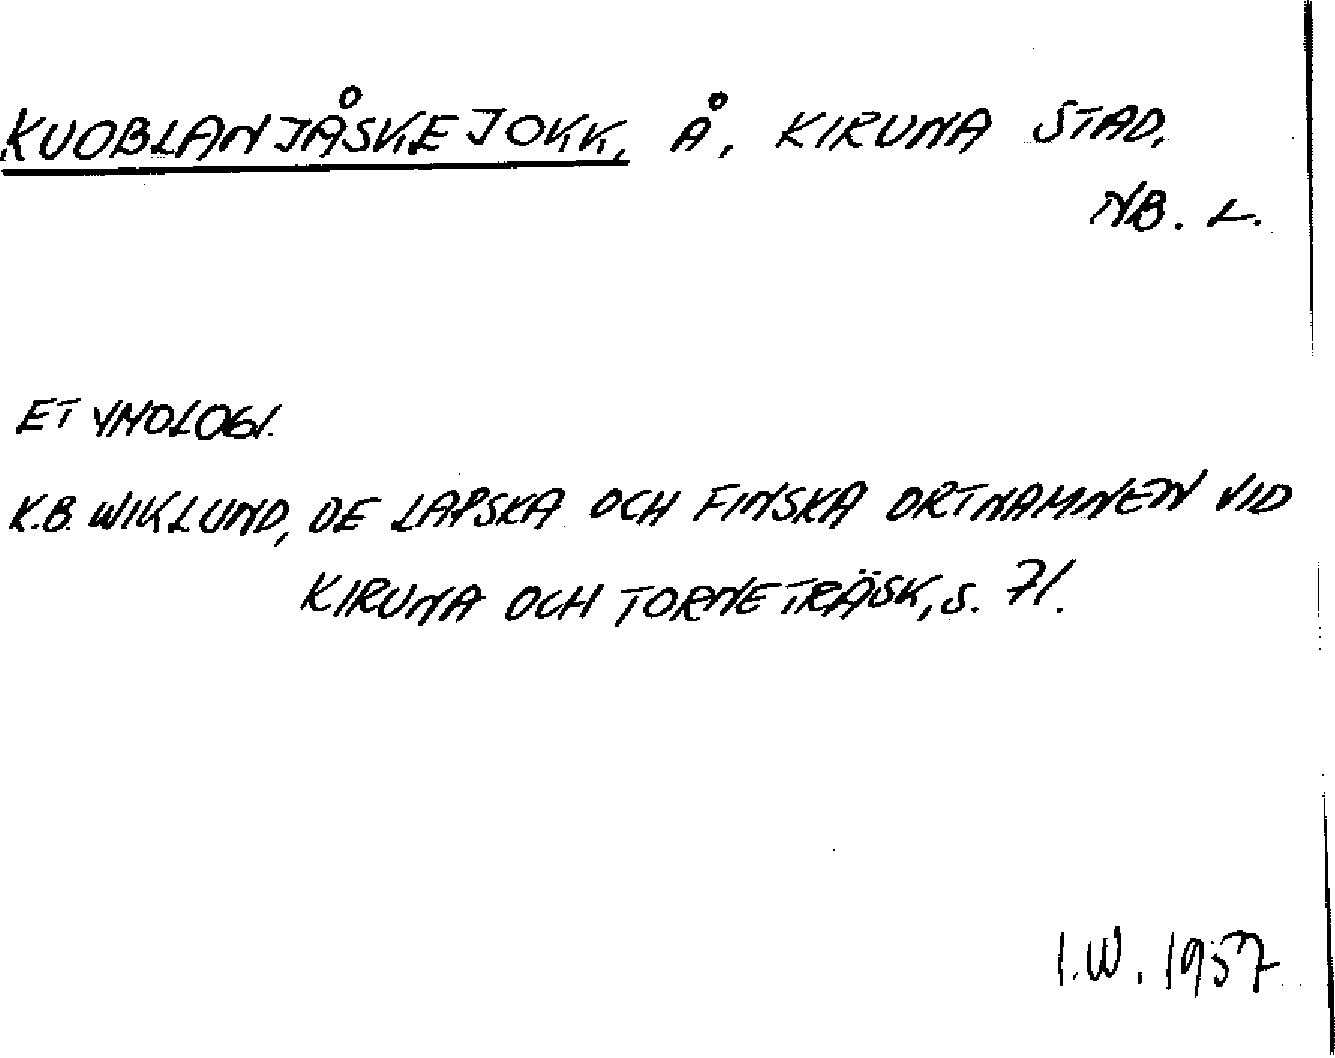 KUOBLANJÅSKEJOKK, Å, KIRUNA STAD,
NB. L.
ETYMOLOGI.
K.B. WIKLUND, DE LAPSKA OCH FINSKA ORTNAMNEN VID
KIRUNA OCH TORNETRÄSK, S. 71.
I.W. 1957